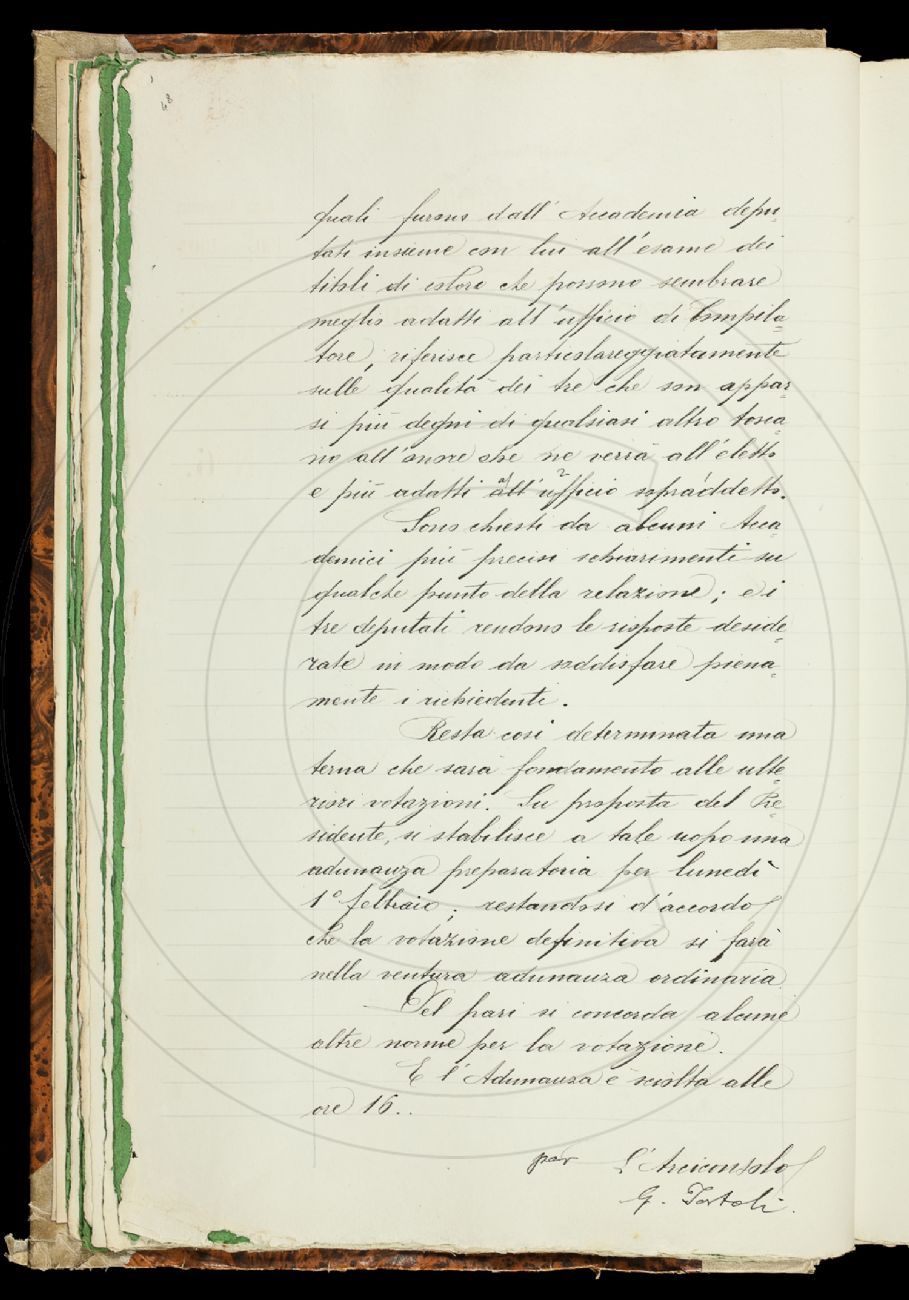 48
quali furono dall'Accademia depu-
tati insieme con lui all'esame dei
titoli di coloro che possono sembrare
meglio adatti all'ufficio di Compila-
tore, riferisce particolareggiatamente
sulle qualità dei tre che son appar-
si più degni di qualsiasi altro tosca-
no all'onore che ne verrà all'eletto
e più adatti all'ufficio sopraddetto.
Sono chiesti da alcuni Acca-
demici più precisi schiarimenti su
qualche punto della relazione; e i
tre deputati rendono le risposte deside-
rate in modo da soddisfare piena-
mente i richiedenti.
Resta così determinata una
terna che sarà fondamento alle ulte-
riori votazioni. Su proposta del Pre-
sidente, si stabilisce a tale uopo una
adunanza preparatoria per lunedì
1° febbraio; restandosi d'accordo
che la votazione definitiva si farà
nella ventura adunanza ordinaria.
Del pari si concorda alcune
altre norme per la votazione.
E l'Adunanza è sciolta alle
ore 16..
per L'Arciconsolo
G. Tortoli.